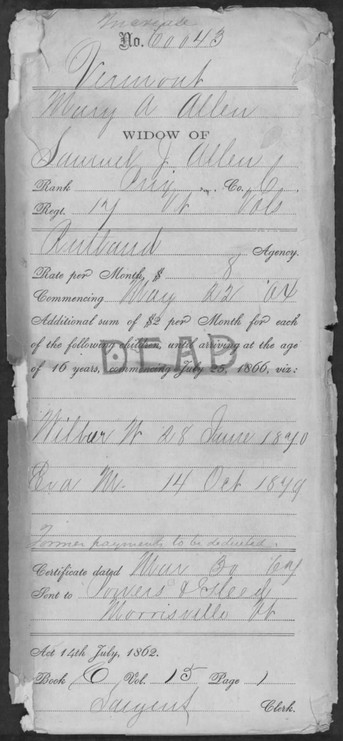 Increase
No. 60043
Vermont
Mary A Allen
WIDOW OF
Samuel J. Allen
Rank Priv Co. C
Regt. 17 Vt Vols
Rutland Agency.
Rate per Month, $ 8
Commencing May 22 '64
Additional sum of $2 per Month for each
of the following children, until arriving at the age
of 16 years, commencing July 25, 1866, viz:
DEAD
Wilbur W 28 June 1870
Eva M. 14 Oct 1879
Former payments to be deducted.
Certificate dated Mar 30 '67
Sent to Powers &
Morrisville Vt
Act 14th July, 1862.
Book C Vol. 15 Page 1
Sargent Clerk.